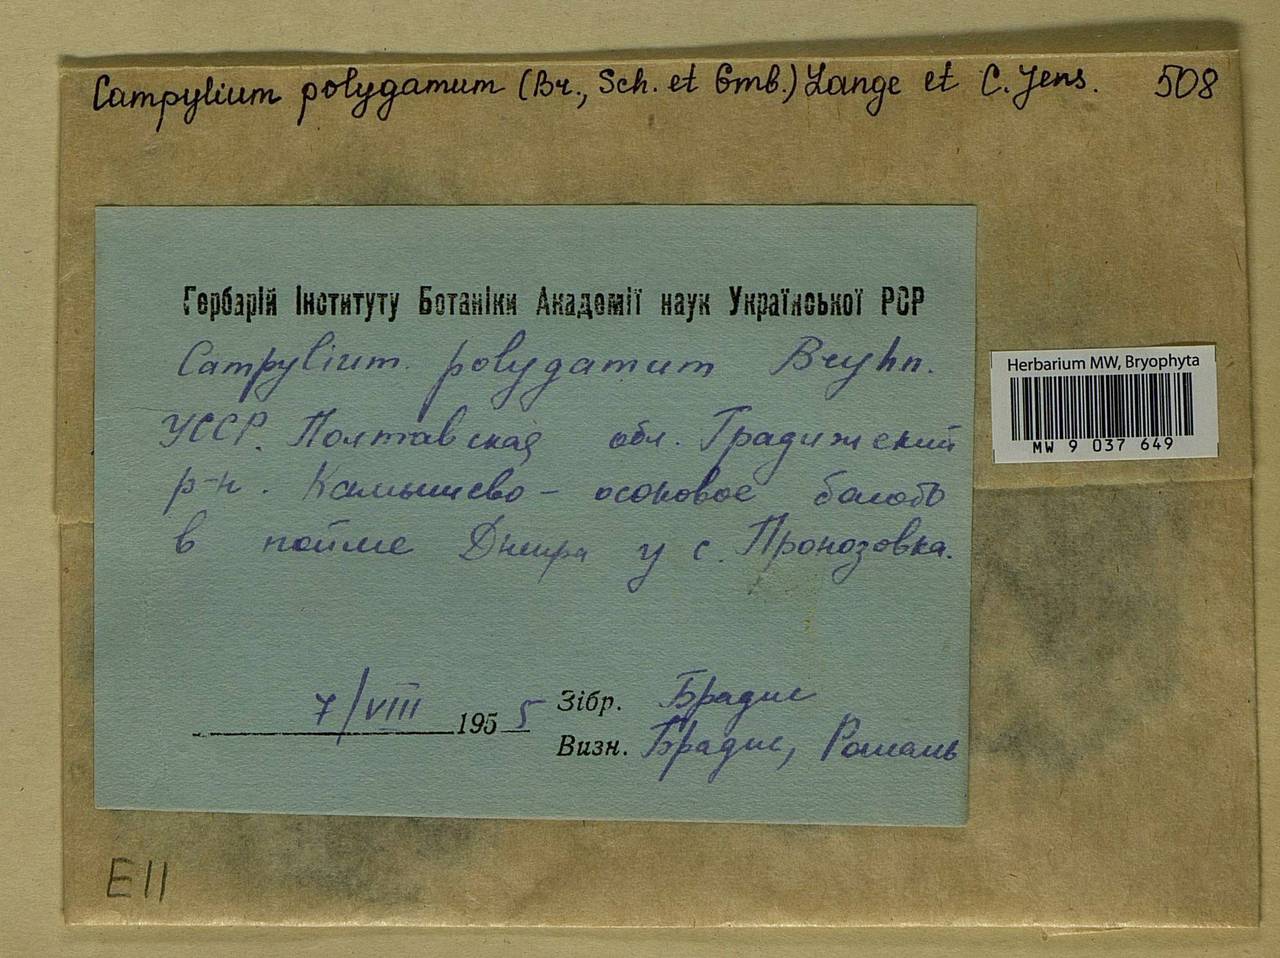 Campylium polygamum (Br., Sch. et Gmb.) Lange et C. Jens. 508
Гербарій Інституту Ботаніки Академії наук Української РСР
Campylium polygamum Bryhn.
УССР. Полтавская обл. Градижский
р-н. Камышево - осоковое болото
в пойме Днепра у с. Пронозовка.
7/VIII 1955 Зібр. Брадис
Визн. Брадис, Романь
Herbarium MW, Bryophyta
MW 9 037 649
E11